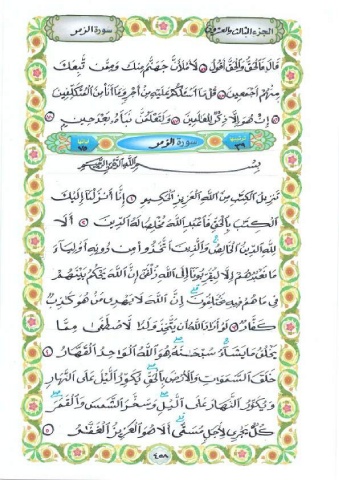 الجزء الثالث والعشرون سورة الزمر
قال فالحق والحق أقول ۝ لأملأن جهنم منك وممن تبعك
منهم أجمعين ۝ قل ما أسئلكم عليه من أجر وما أنا من المتكلفين
۝ إن هو إلا ذكر للعلمين ۝ ولتعلمن نبأه بعد حين ۝
سورة الزمر
بسم الله الرحمن الرحيم
تنزيل الكتب من الله العزيز الحكيم ۝ إنا أنزلنا إليك
الكتب بالحق فاعبد الله مخلصا له الدين ۝ ألا
لله الدين الخالص والذين اتخذوا من دونه أولياء
ما نعبدهم إلا ليقربونا إلى الله زلفى إن الله يحكم بينهم
في ما هم فيه يختلفون إن الله لا يهدي من هو كذب
كفار ۝ لو أراد الله أن يتخذ ولدا لاصطفى مما
يخلق ما يشاء سبحنه هو الله الواحد القهار ٤
خلق السموات والأرض بالحق يكور الليل على النهار
ويكور النهار على الليل وسخر الشمس والقمر
كل يجري لأجل مسمى ألا هو العزيز الغفار ٥
٤٥٨